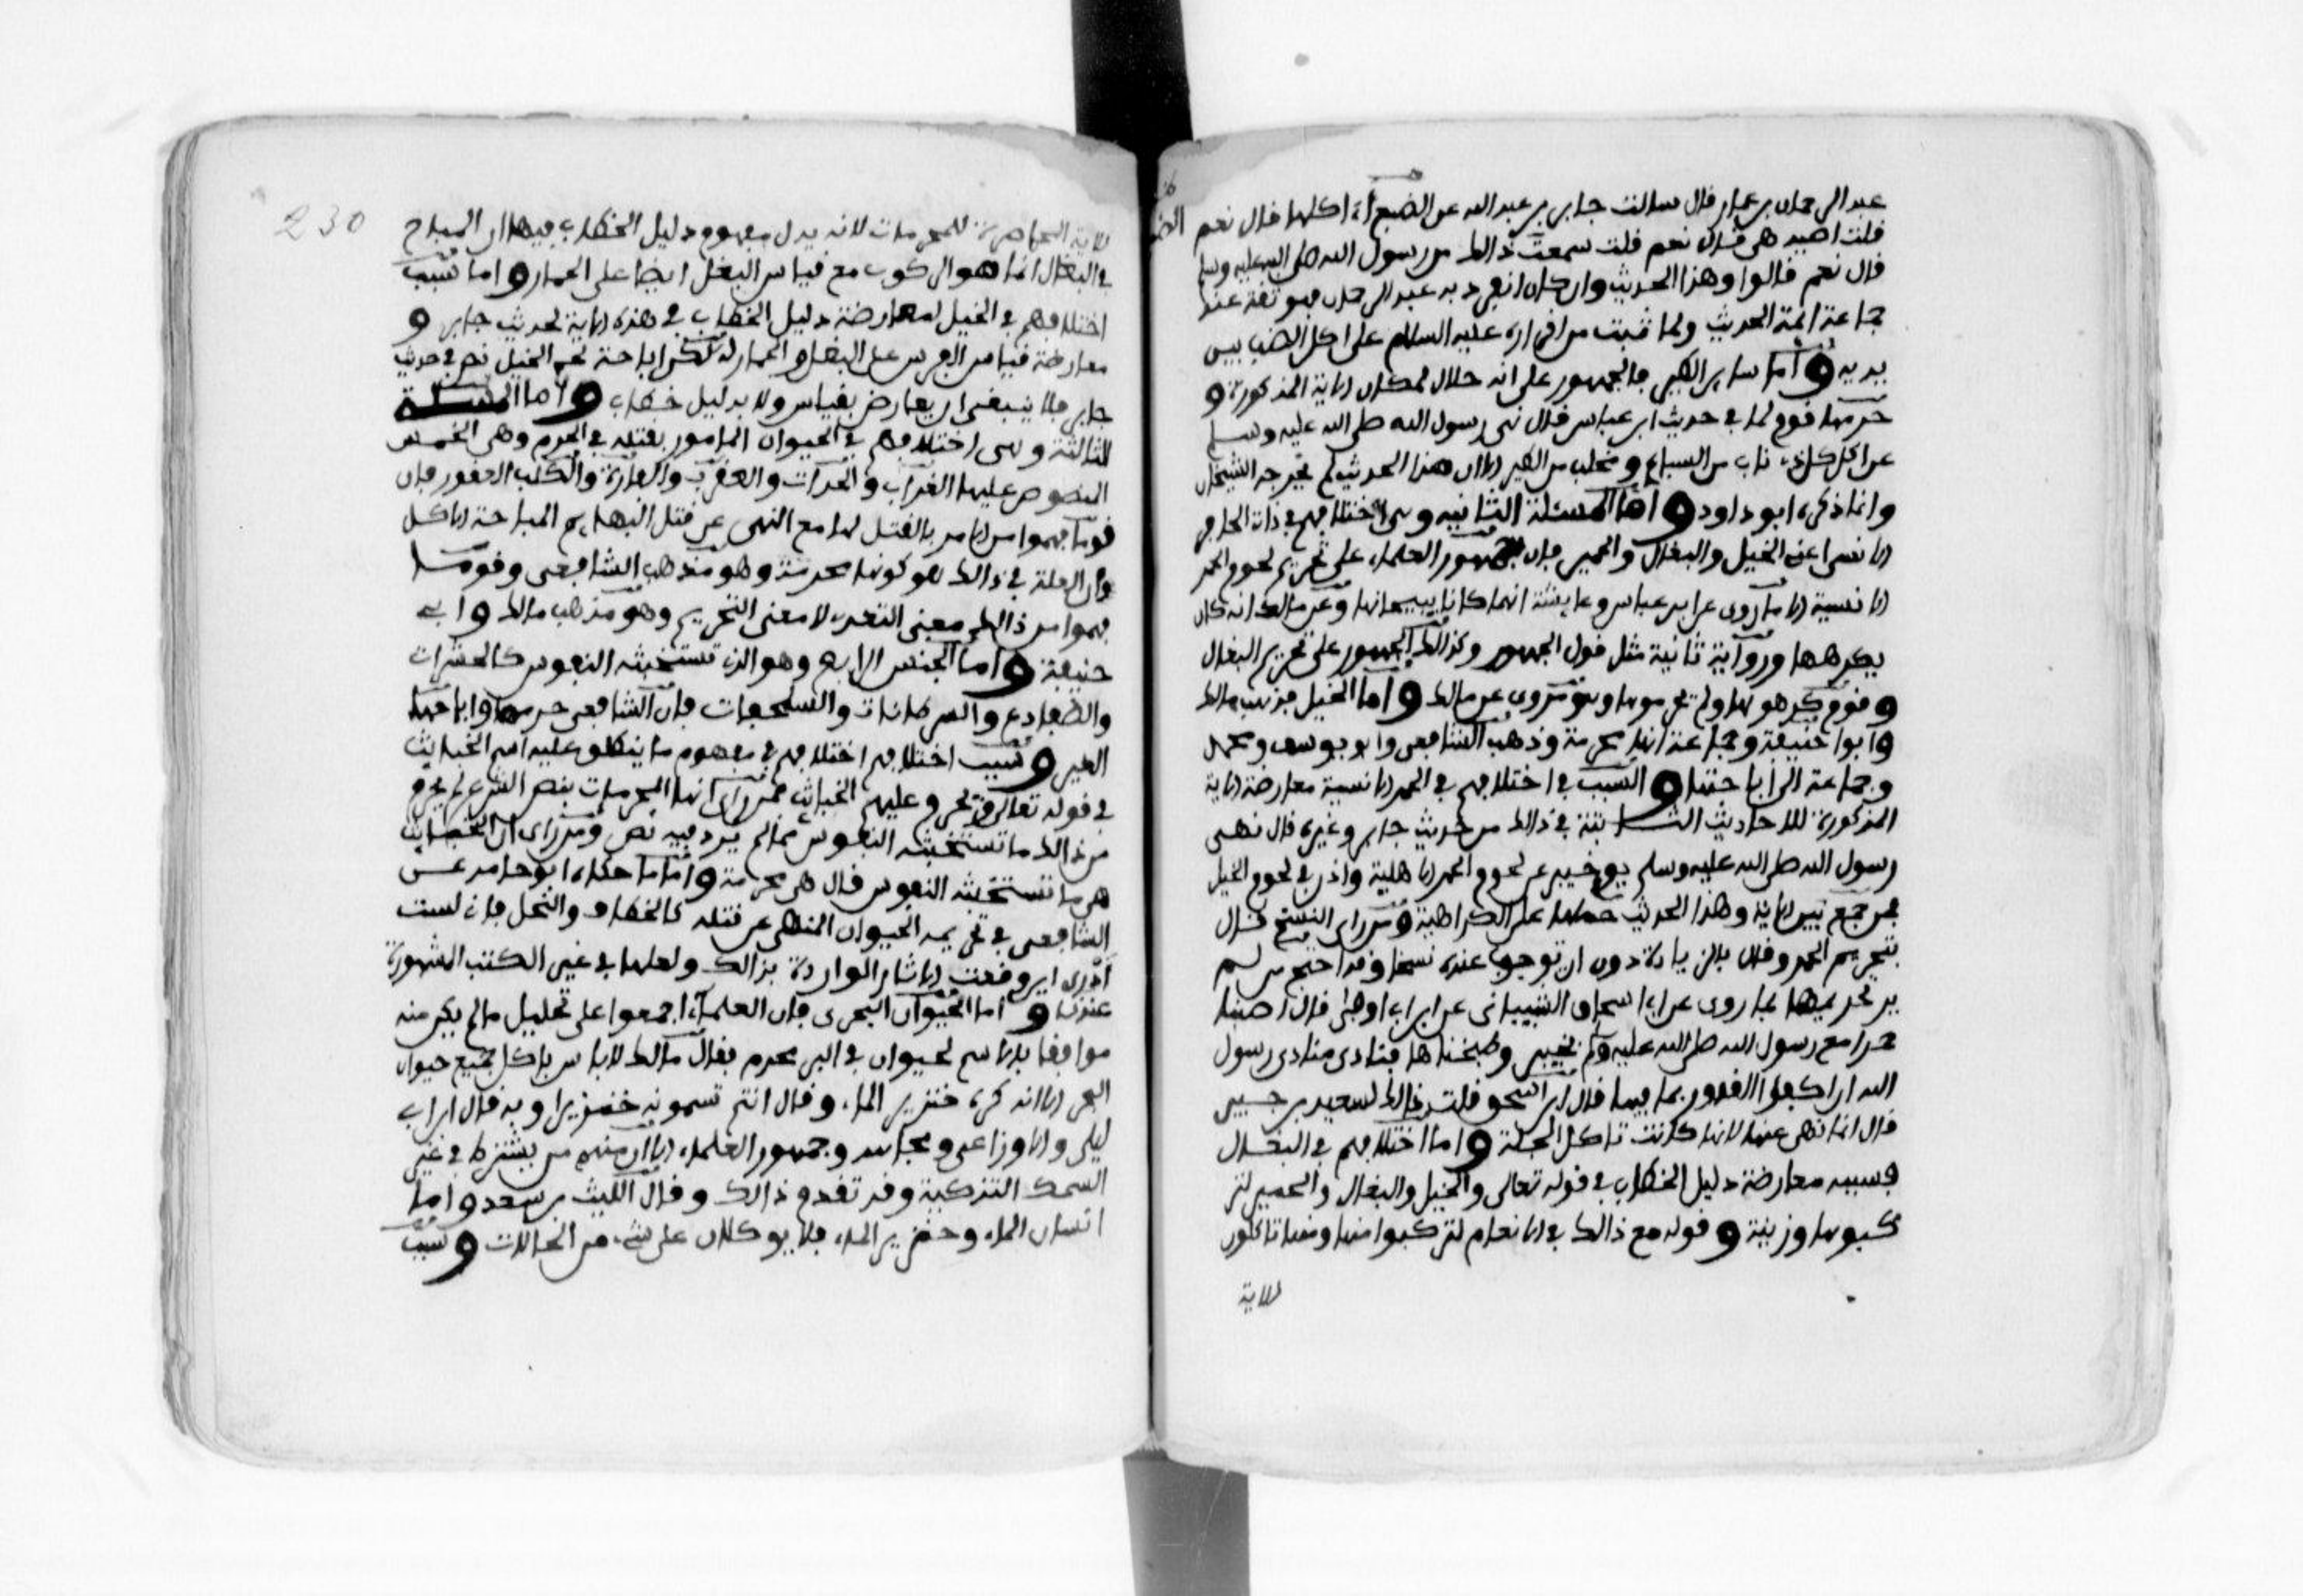 عبد الرحمان بن عمار قال سالت جابر بن عبد الله عن الضبع أءاكلها قال نعم
قلت اصيد هى قال نعم قلت سمعت ذالك من رسول الله صلى الله عليه وسلم
قال نعم قالوا وهذا الحديث وان كان انفرد به عبد الرحمان فهو ثقة عند
جماعة ائمة الحديث ولما ثبت من اقراره عليه السلام على اكل الضب بين
يديه واما سباع الطير فالجمهور على انه حلال لمكان الاية المذكورة و
حرمها قوم لما فى حديث ابن عباس قال نهى رسول الله صلى الله عليه وسلم
عن اكل كل ذى ناب من السباع و مخلب من الطير الا ان هذا الحديث لم يخرجه الشيخان
وانما ذكره ابو داود واما المسئلة الثانية وهى اختلافهم فى ذات الحافر
الانسى اعنى الخيل والبغال والحمير فإن جمهور العلماء على تحريم لحوم الحمر
الانسية الا ما روى عن ابن عباس وعايشة انهما كانا يبيحانها وعن مالك انه كان
يكرهها ورواية ثانية مثل قول الجمهور وكذالك الجمهور على تحريم البغال
وقوم كرهوها ولم يحرموها وهو مروى عن مالك واما الخيل فذهب مالك
وابوا حنيفة وجماعة انها محرمة وذهب الشافعى وابو يوسف ومحمد
وجماعة الى اباحتها والسبب فى اختلافهم فى الحمر الانسية معارضة الاية
المذكورة للاحاديث الثابتة فى ذالك من حديث جابر وغيره قال نهى
رسول الله صلى الله عليه وسلم يوم خيبر عن لحوم الحمر الاهلية واذن فى لحوم الخيل
فمن جمع بين الاية وهذا الحديث حملها على الكراهية ومن راى النسخ قال
بتحريم الحمر وقال بالزيادة دون ان توجب عنده نسخا وقد احتج من لم
ير تحريمها بما روى عن ابى اسحاق الشيبانى عن ابن ابى اوفى قال اصبنا
حمرا مع رسول الله صلى الله عليه وسلم بخيبر وطبخناها فنادى منادى رسول
الله ان اكفوا القدور بما فيها قال ابن اسحق فذكرت ذالك لسعيد بن جبير
قال انما نهى عنها لانها كانت تاكل الجلة واما اختلافهم فى البغال
فسببه معارضة دليل الخطاب فى قوله تعالى والخيل والبغال والحمير لتر
كبوها وزينة وقوله مع ذالك فى الانعام لتركبوا منها ومنها تاكلون
للاية
230
للاية الحاصرة للمحرمات لانه يدل مفهوم دليل الخطاب فيها ان المباح
فى البغال انما هو الركوب مع قياس البغل ايضا على الحمار واما سبب
اختلافهم فى الخيل لمعارضة دليل الخطاب فى هذه الاية لحديث جابر و
معارضة قياس الفرس على البغل والحمار له لكن اباحة لحم الخيل نص فى حديث
جابر فلا ينبغى ان يعارض بقياس ولا بدليل خطاب واما المسئلة
الثالثة وهى اختلافهم فى الحيوان المامور بقتله فى الحرم وهى الخمس
المنصوص عليها الغراب والحدأة والعقرب والفارة والكلب العقور فإن
قوما فهموا من الامر بالقتل لها مع النهى عن قتل البهايم المباحة الاكل
وان العلة فى ذالك هو كونها محرمة وهو مذهب الشافعى وقوما
فهموا من ذالك معنى التعدى لا معنى التحريم وهو مذهب مالك وابى
حنيفة واما الجنس الرابع وهو الذى تستخبثه النفوس كالحشرات
والضفادع والسرطانات والسلحفات فإن الشافعى حرمها واباحها
الغير وسبب اختلافهم اختلافهم فى مفهوم ما ينطلق عليه اسم الخبايث
فى قوله تعالى ويحرم عليهم الخبائث فمن راى انها المحرمات بنص الشرع لم يحرم
من ذالك ما تستخبثه النفوس مما لم يرد فيه نص ومن راى ان الخبايث
هى ما تستخبثه النفوس قال هى محرمة واما ما حكاه ابو حامد عن
الشافعى فى تحريمه الحيوان المنهى عن قتله كالخطاف والنحل فإنى لست
أدرى اين وقعت الاثار الواردة بذالك ولعلها فى غير الكتب المشهورة
عندنا واما الحيوان البحرى فإن العلماء اجمعوا على تحليل ما لم يكن منه
موافقا بالاسم لحيوان فى البر محرم فقال مالك لاباس باكل جميع حيوان
البحر الا انه كره خنزير الماء وقال انتم تسمونه خنزيرا وبه قال ابن ابى
ليلى والاوزاعى ومجاهد وجمهور العلماء الا ان منهم من يشترط فى غير
السمك التذكية وقد تقدم ذالك وقال الليث بن سعد واما
انسان الماء وخنزير الماء فلا يوكلان على شىء من الحالات وسبب